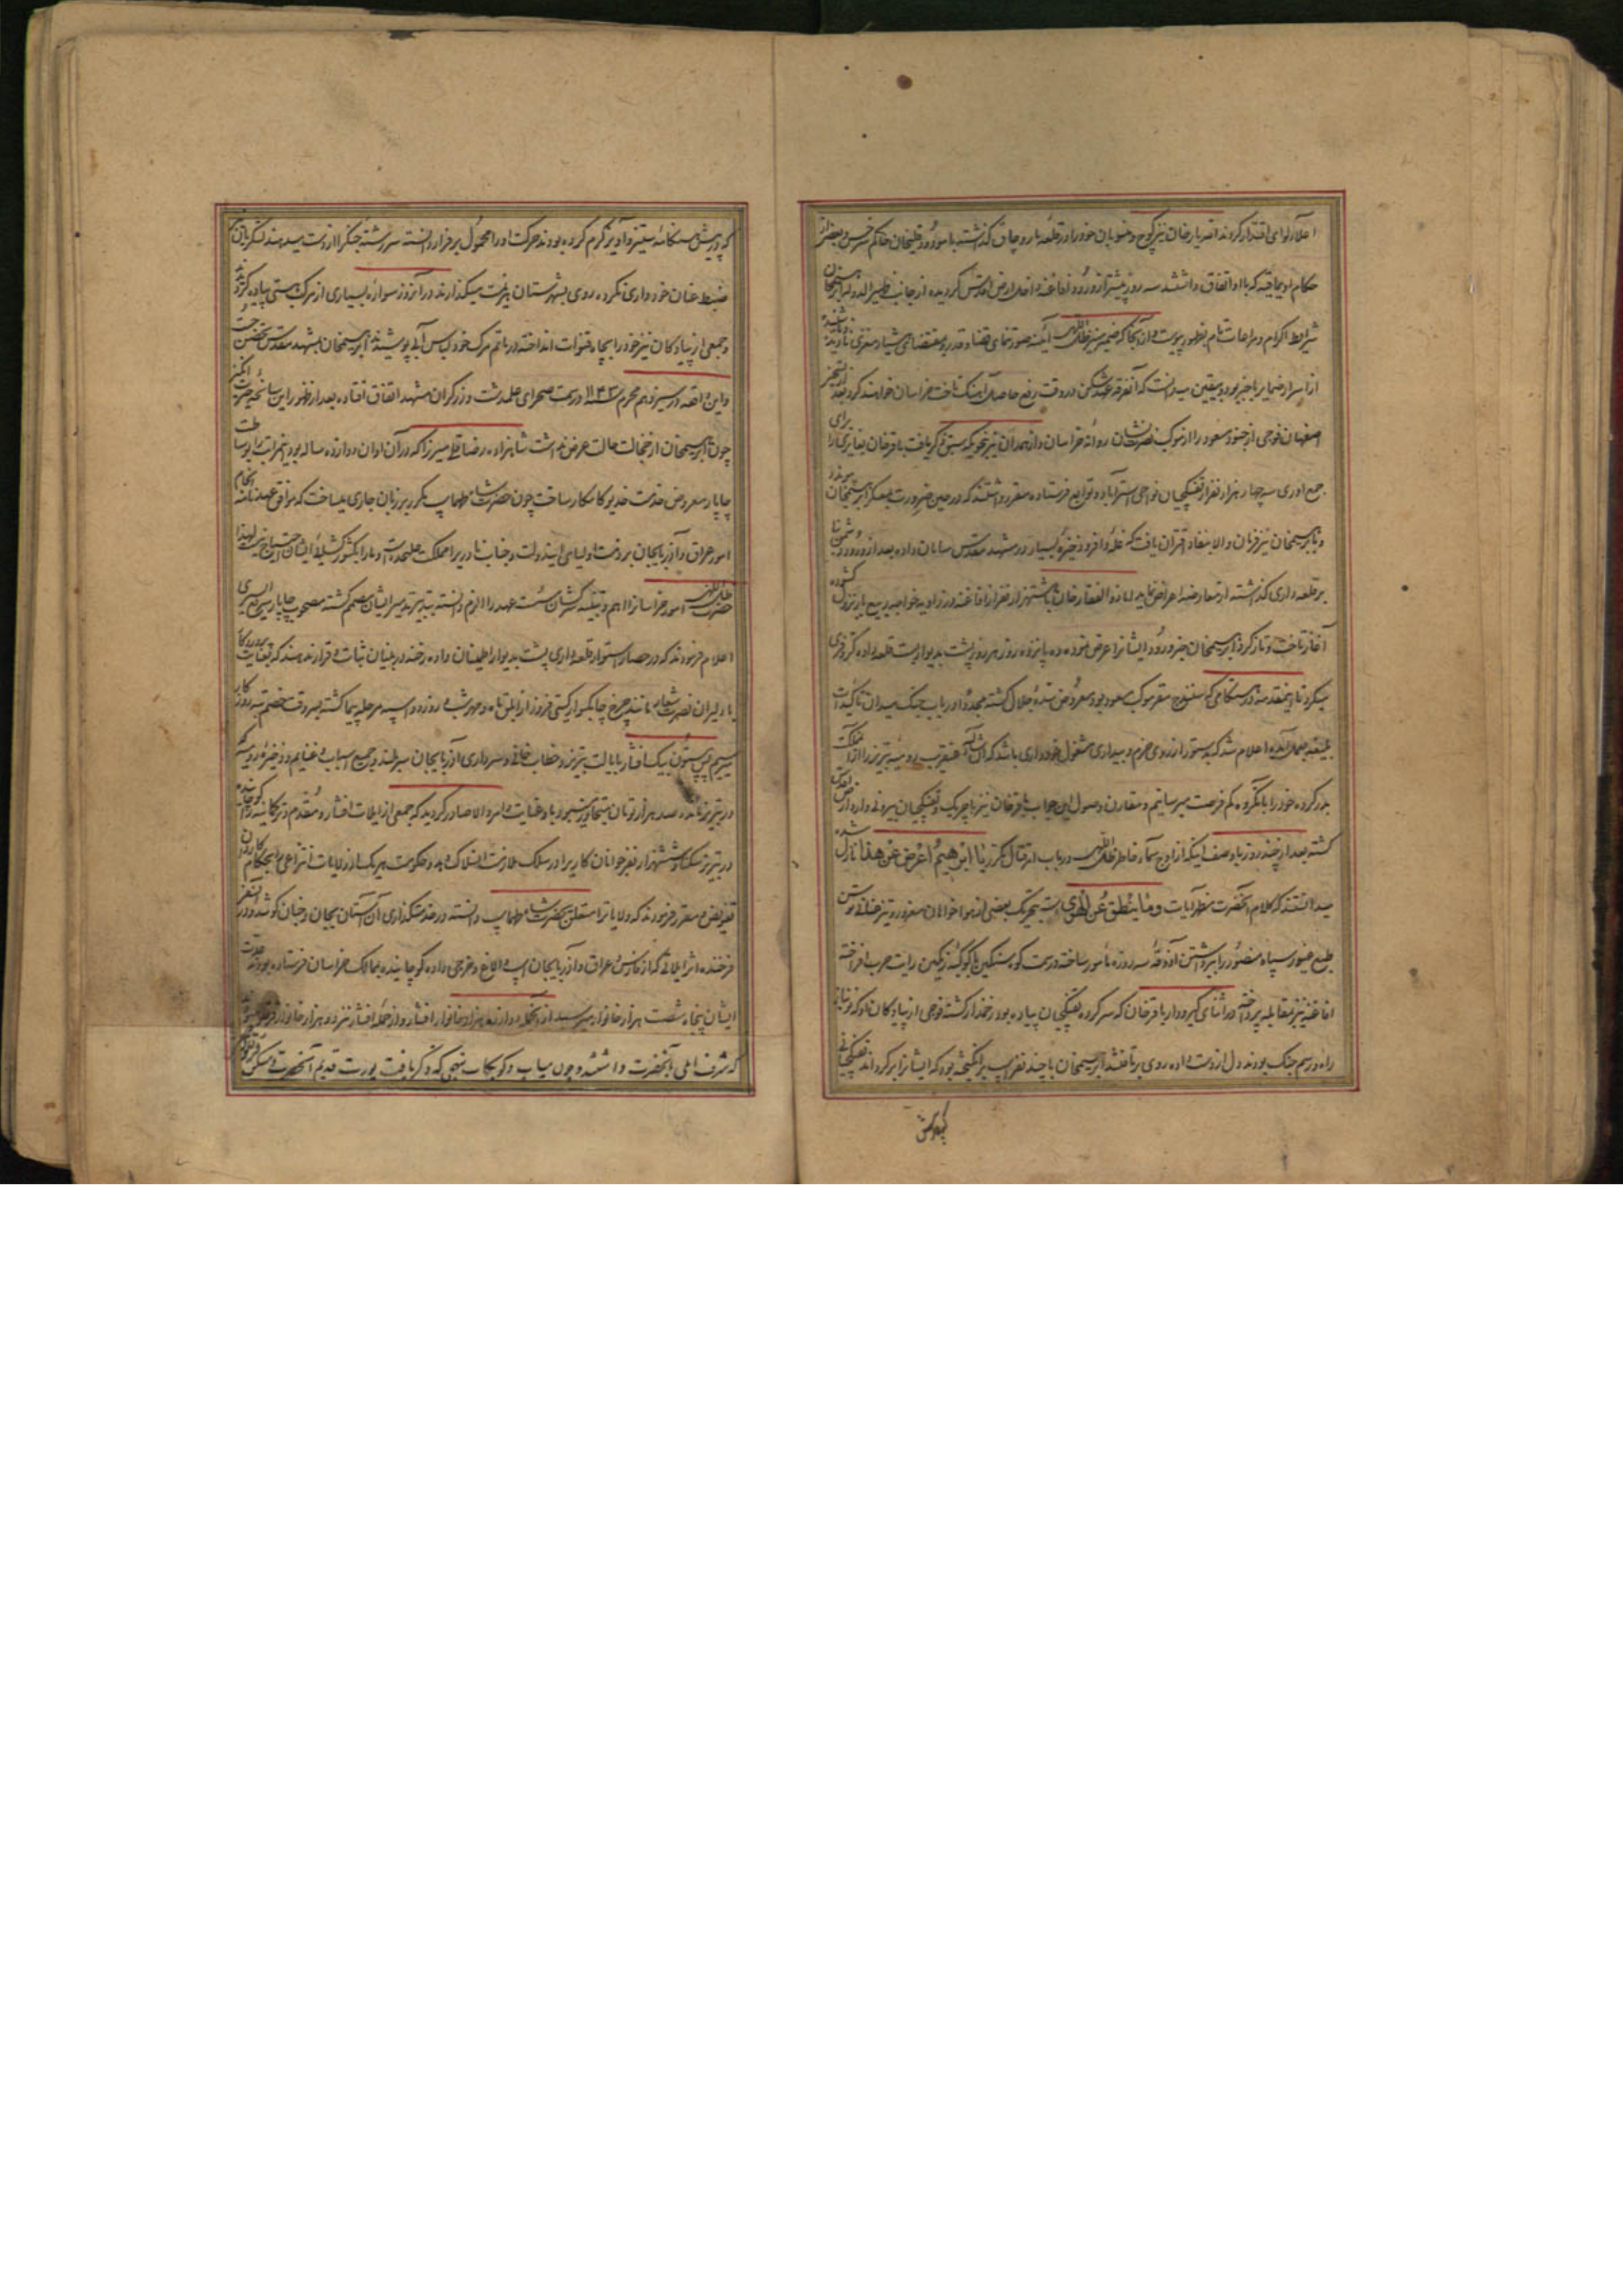 اعلای لوای اقتدار کردند الهیار خان نیز کوچ و منسوبان خود را در قلعه بار و چاق گذاشته با
حکام اویماقیه که با او اتفاق داشتند سه روز پیشتر از ورود افاغنه داخل ارض اقدس گردیده از جانب ظهیرالدوله ابراهیمخان
شرایط اکرام و مراعات تام بظهور پیوست و از آنجا که ضمیر منیر ظل اللهی آینه صورتنمای قضا و قدر بود
از اسرار ضمایر باخبر بود بیقین میدانست که آنفرقه عهدشکن در وقت رفع حاصل آهنگ تاخت خراسان خواهند کرد بعد از تسخیر
اصفهان فوجی از جنود مسعود را از موکب نصرت نشان روانه خراسان و از همدان نیز بنحویکه سبق ذکر یافت باقرخان بغایری را برای
جمع آوری سه چهار هزار نفر از تفنگچیان نواحی استراباد و توابع فرستاده مقرر داشتند که در حین ضرورت بمعسکر ابراهیمخان پیوندد
و بابراهیمخان نیز فرمان والا بنفاذ اقتران یافت که غله وافر و ذخیره بسیار در مشهد مقدس سامان داده بعد از ورود دشمن بنا
بر قلعه داری گذاشته از معارضه اعراض نماید اما ذوالفقارخان با هشتهزار نفر از افاغنه در زاویه خواجه ربیع بار نزول گشوده
آغاز تاخت و تاز کرد ابراهیمخان خبر ورود ایشانرا عرض نموده ده پانزده روز هر روز پشت بدیوار بست قلعه داده کر و فری
میکرد تا اینمقدمه در سنقر مقر موکب مسعود بود معروض سده جلال گشته مجددا در باب جنگ میدان تأکیدات
بلیغه بعمل آمده اعلام شد که بدستور از روی حزم و بیداری مشغول خودداری باشد که انشاءالله عنقریب رومیه تبریز را از آنمملکت
بدر کرده خود را بآنگروه کم فرصت میرسانیم و مقارن وصول این جواب باقرخان نیز با چریک و تفنگچیان بیرونی وارد ارض اقدس
گشته بعد از چند روز با وصف اینکه از اوج سمآء خاطر ظل اللهی در باب امر قتال مکرر یا ابرهیم اعرض عن هذا نازل شده
میدانستند که کلام آنحضرت مظهر آیات وما ینطق عن الهوی است بتحریک بعضی از هواخوانان مغرور و تیز عنانی توسن
طبع غیور سپاه منصور را ببرداشتن آذوقه سه روزه مأمور ساخته در سمت کوه سنگین با کوکبه رنگین رایت حرب افراخته
افاغنه نیز مقابله پرداخته در اثنای گیر و دار باقرخان که سرکرده تفنگچیان پیاده بود زخمدار گشته فوجی از پیادگان او که
راه و رسم جنگ بودند دل از دست داده روی برتافتند ابراهیمخان با چند نفر اسب برانگیخته بود که ایشانرا برگرداند تفنگچیانی
که در پیش هنگامه ستیز و آویز گرم کرده بودند حرکت او را محمول بر فرار دانسته سررشته جنگ را از دست میدهند لشکریان
ضبط عنان خودداری نکرده روی بشهرستان هزیمت میگذارند در آنروز سواره بسیاری از مرکب هستی پیاده گردید
و جمعی از پیادگان نیز خود را بچاه و قنوات انداخته در ماتم مرگ خود لباس آبی پوشیدند ابراهیمخان بمشهد مقدس تحصن جست
و این واقعه در سیزدهم محرم سنه ۱۱۴۳ در سمت صحرای علمدشت و زرگران مشهد اتفاق افتاده بعد از ظهور این سانحه حیرت انگیز
چون ابراهیمخان از خجالت حالت عرض نداشت شاهزاده رضاقلی میرزا که در آن اوان دوازده ساله بود اینمراتب را بوساطت
چاپار معروض خدمت خدیو کامکار ساخت چون حضرت شاه طهماسب مکرر بر زبان جاری میساخت که موافق عهدنامه انجام
امور عراق و آذربایجان بر ذمت اولیای ایندولت و جناب نادر بر مملکت علیحده است و ما را بکشورگشایی ایشان احتیاج نیست لهذا
حضرت ظل اللهی امور خراسانرا اهم و تنبیه سرکشان سست عهد را الزم دانسته بتدبیر تدمیر ایشان مصمم گشته مصحوب چاپار سریع السیری
اعلام فرمودند که در حصار استوار قلعه داری پشت بدیوار اطمینان داده رخنه در بنیان ثبات و قرار ندهند که بعنایت پروردگار
با دلیران نصرت شعار مانند چرخ چابکسوار گیتی فروز از ابلق ماه و مهر شب و روز دو اسبه مرحله پیما گشته بسر وقت خصم تیره روزگار
میرسیم پس بیستون بیک افشار بایالت تبریز و خطاب خانی و سرداری آذربایجان سربلند و جمیع اسباب و غنایم و ذخیره رومیه
در تبریز مانده صد هزار تومان متجاوز میشد باو عنایت و امر والا صادر گردید که جمعی از ایلات افشار و مقدم و ترکانیه را کوچانیده
در تبریز سکنا و ششهزار نفر جوانان کاربر را در سلک ملازمت انسلاک دهد و حکومت هر یک از ولایات انتزاعی را بحکام کاردان
تفویض و مقرر فرمودند که ولایاترا متعلق بحضرت شاه طهماسب دانسته در خدمتگذاری آن آستان بجان و جنان کوشد و در آنسفر
فرخنده اثر ایلاتی که از فارس و عراق و آذربایجان اسب و الاغ و خرجی داده کوچانیده بممالک خراسان فرستاده بودند
ایشان پنجاه شصت هزار خانوار میرسید از آنجمله دوازده هزار خانوار افشار و از جمله افشار نیز دو هزار خانوار
که شرف ایلی آنحضرت داشتند و چون میاب و کوبکان بنهجی که ذکر یافت یورت قدیم آنحضرت و مسکن